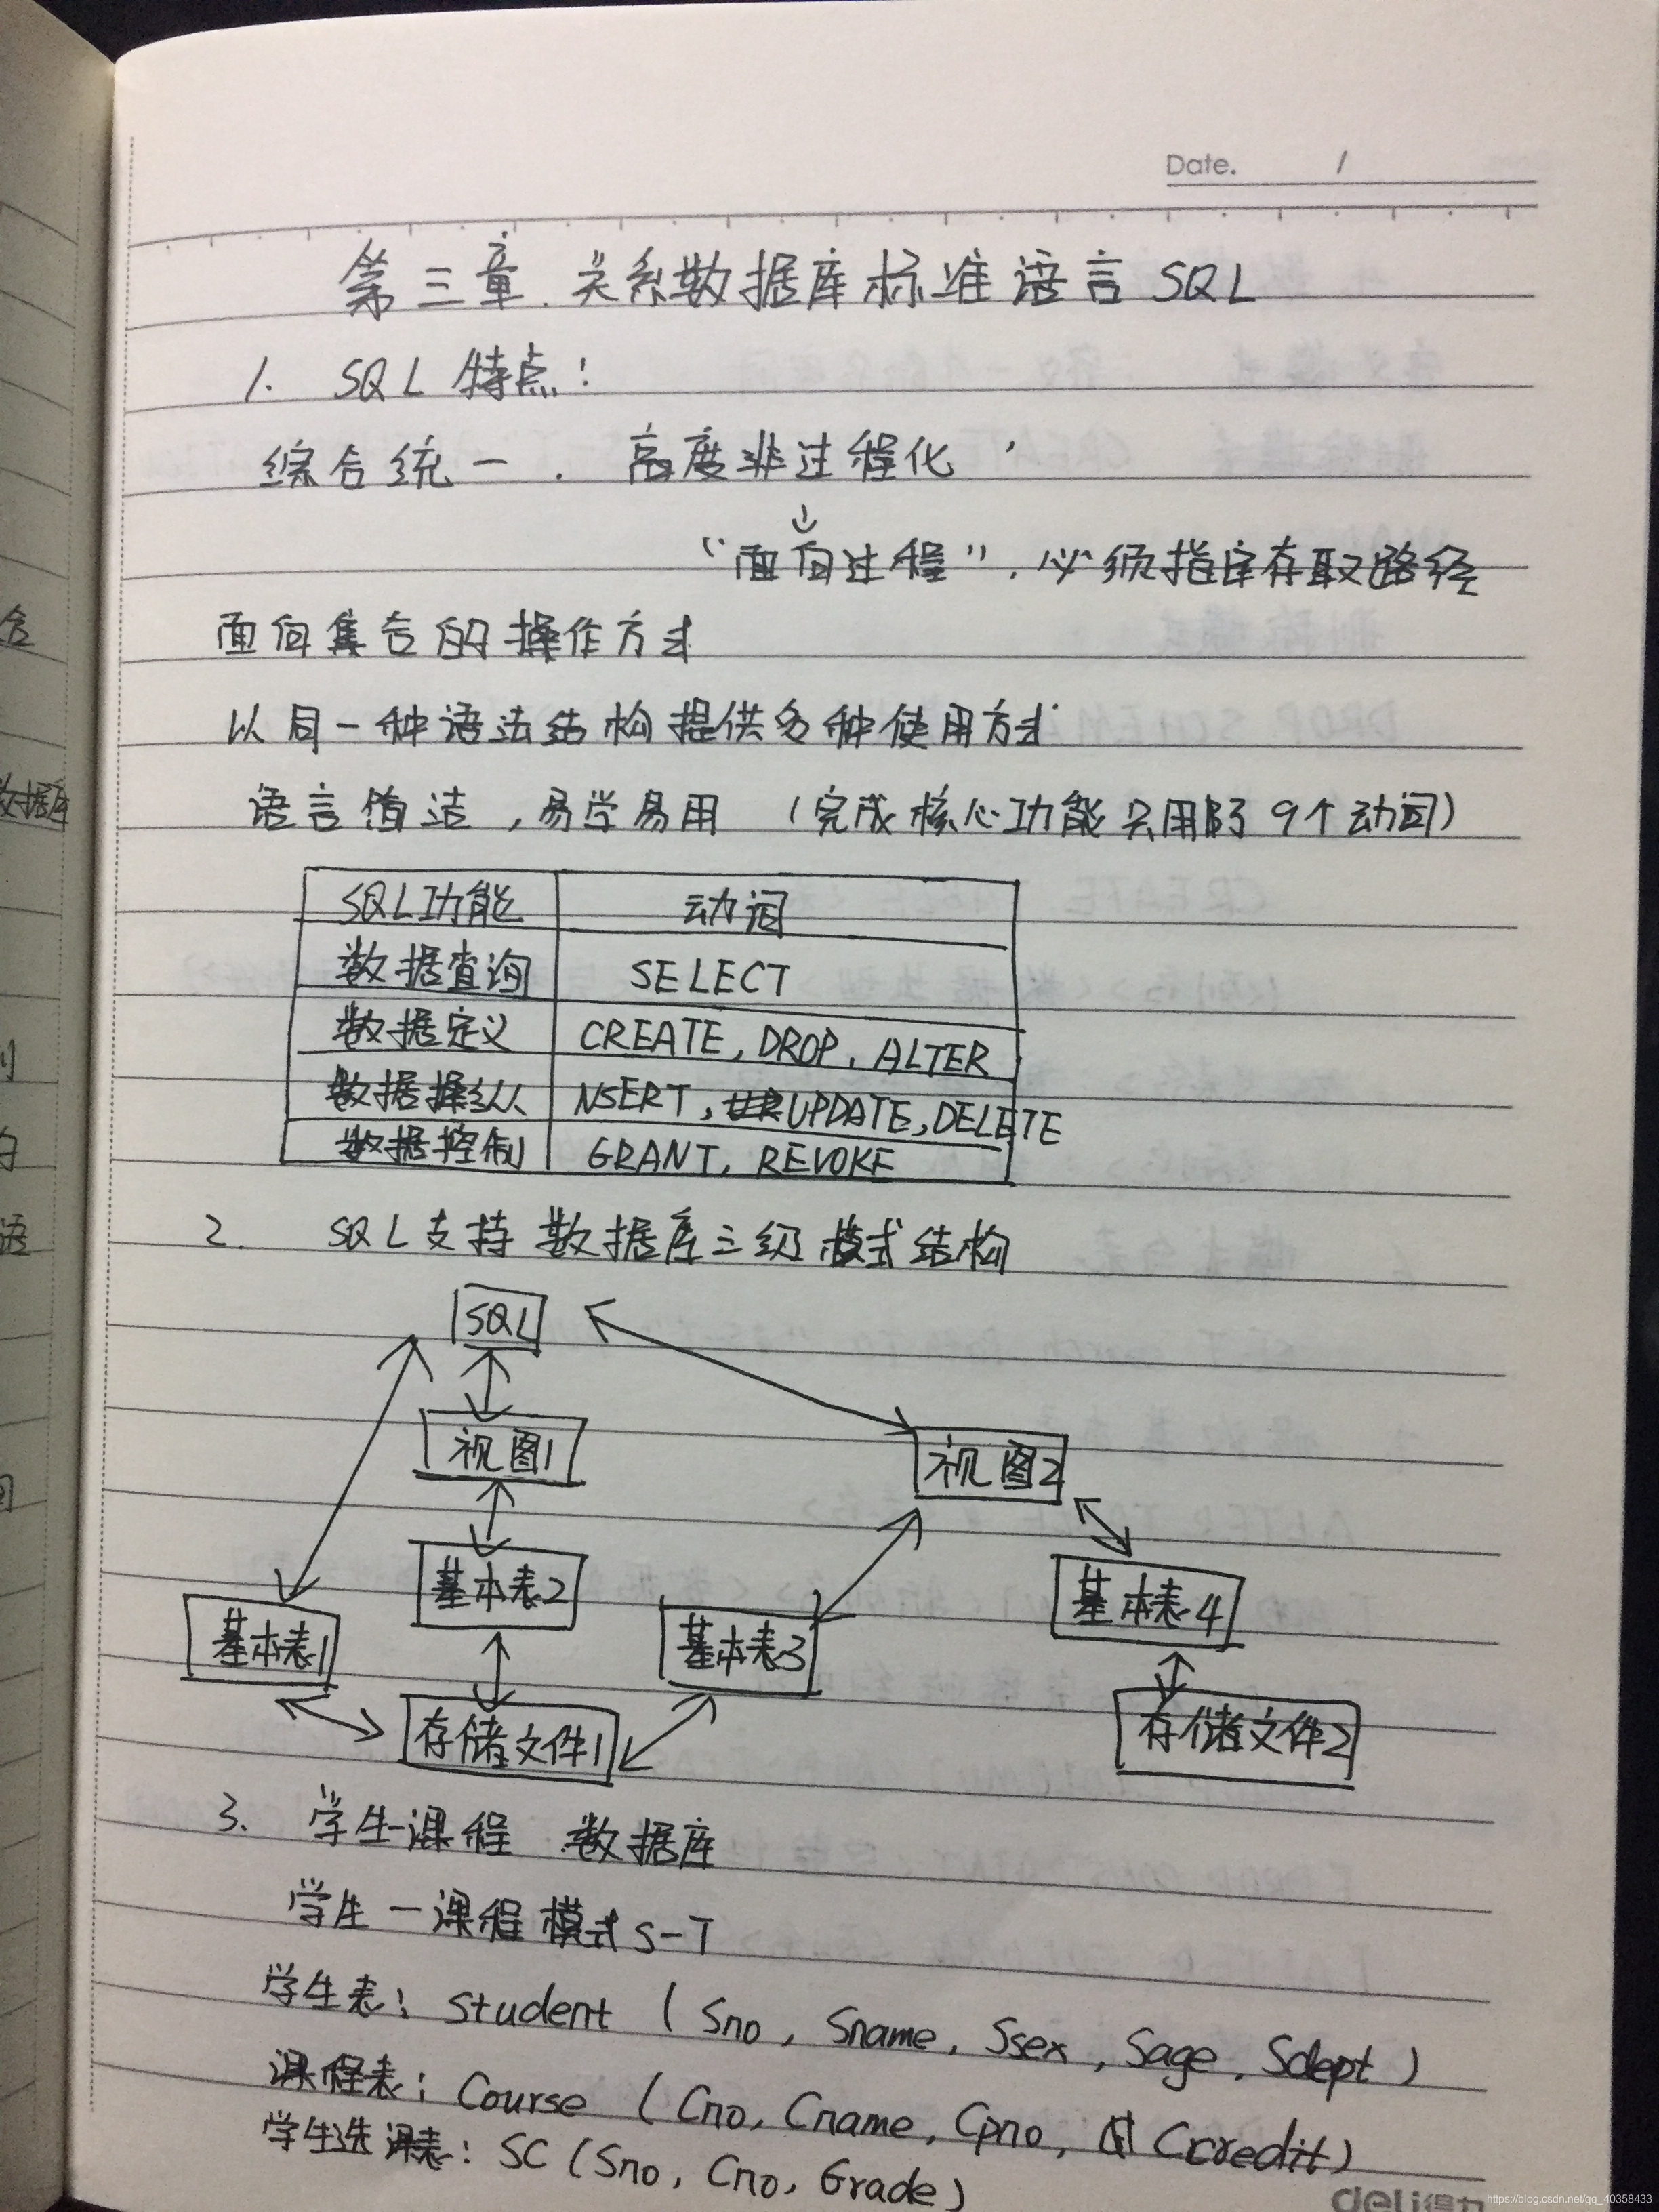 Date. /
第三章. 关系数据库标准语言 SQL
1. SQL 特点:
综合统一 . 高度非过程化 ,
↓
“面向过程”, 必须指定存取路径
面向集合的操作方式
以同一种语法结构提供多种使用方式
语言简洁,易学易用 (完成核心功能只用了9个动词)
SQL功能 动词
数据查询 SELECT
数据定义 CREATE, DROP, ALTER
数据操纵 NSERT, UPDATE, DELETE
数据控制 GRANT, REVOKE
2. SQL支持数据库三级模式结构
SQL
视图1 视图2
基本表2 基本表4
基本表1 基本表3
存储文件1 存储文件2
3. 学生-课程 数据库
学生-课程模式 S-T
学生表: Student (Sno, Sname, Ssex, Sage, Sdept)
课程表: Course (Cno, Cname, Cpno, Ccredit)
学生选课表: SC (Sno, Cno, Grade)
deli得力
https://blog.csdn.net/qq_40358433